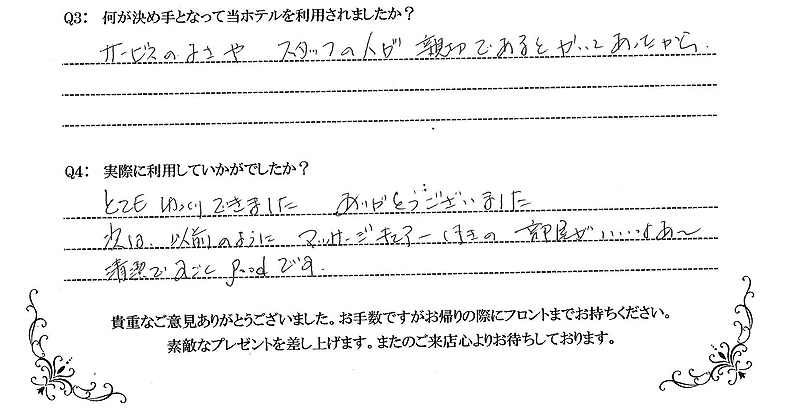 Q3: 何が決め手となって当ホテルを利用されましたか?
サービスのよさや スタッフの人が 親切であるとかいてあったから.
Q4: 実際に利用していかがでしたか?
とても ゆっくりできました ありがとうございました
次は、以前のように マッサージチェアー付きの 部屋がいいなあ〜
清潔で すごく goodです.
貴重なご意見ありがとうございました。お手数ですがお帰りの際にフロントまでお持ちください。
素敵なプレゼントを差し上げます。またのご来店心よりお待ちしております。